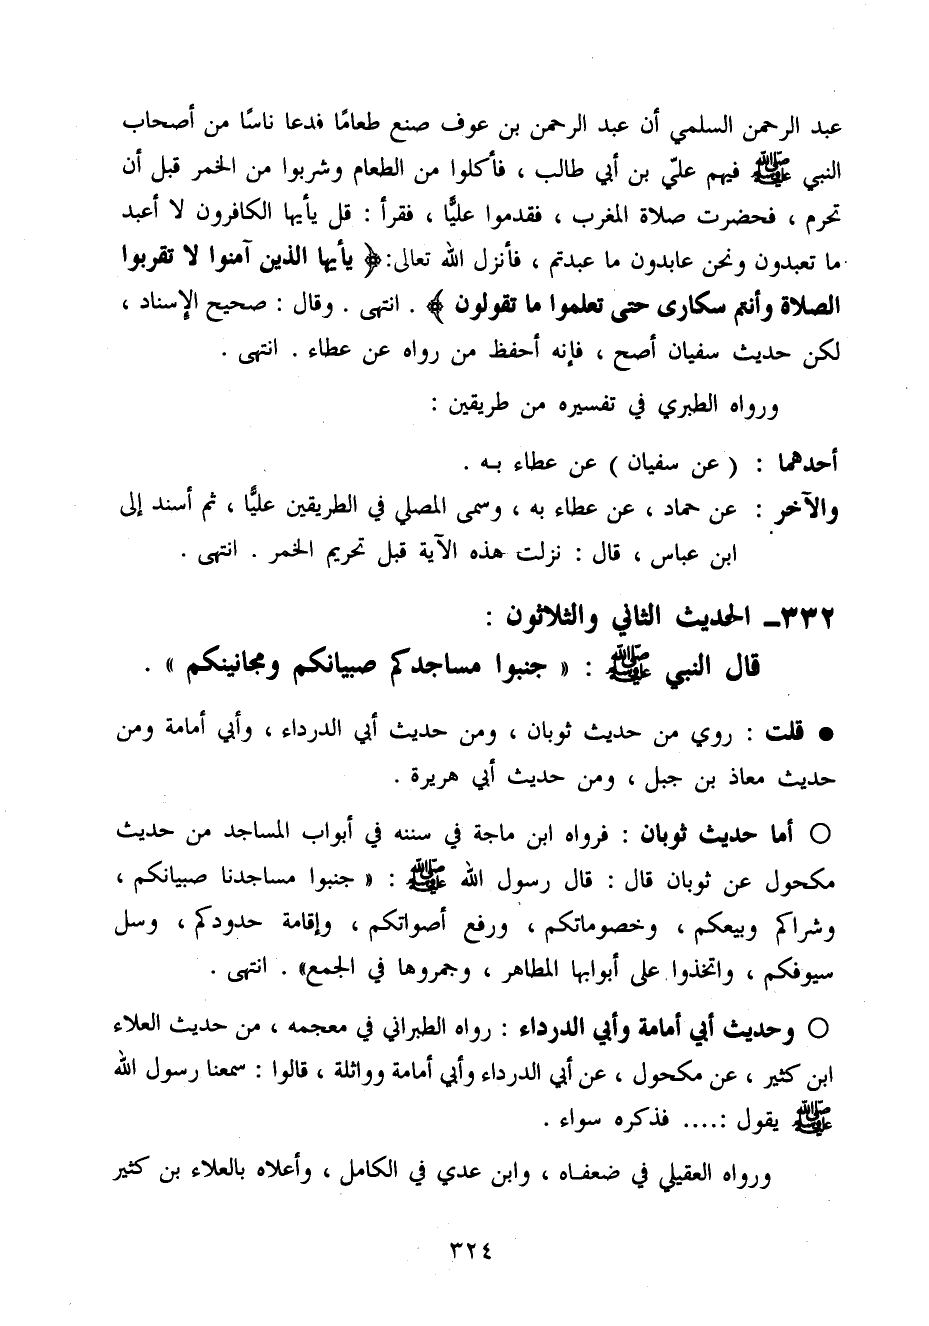 عبد الرحمن السلمي أن عبد الرحمن بن عوف صنع طعامًا فدعا ناسًا من أصحاب
النبي ﷺ فيهم عليّ بن أبي طالب ، فأكلوا من الطعام وشربوا من الخمر قبل أن
تحرم ، فحضرت صلاة المغرب ، فقدموا عليًّا ، فقرأ : قل يأيها الكافرون لا أعبد
ما تعبدون ونحن عابدون ما عبدتم ، فأنزل الله تعالى: ﴿ يأيها الذين آمنوا لا تقربوا
الصلاة وأنتم سكارى حتى تعلموا ما تقولون ﴾ . انتهى . وقال : صحيح الإسناد ،
لكن حديث سفيان أصح ، فإنه أحفظ من رواه عن عطاء . انتهى .
ورواه الطبري في تفسيره من طريقين :
أحدهما : ( عن سفيان ) عن عطاء بـه .
والآخر : عن حماد ، عن عطاء به ، وسمى المصلي في الطريقين عليًّا ، ثم أسند إلى
ابن عباس ، قال : نزلت هذه الآية قبل تحريم الخمر . انتهى .
٣٣٢ـ الحديث الثاني والثلاثون :
قال النبي ﷺ : « جنبوا مساجدكم صبيانكم ومجانينكم » .
● قلت : روي من حديث ثوبان ، ومن حديث أبي الدرداء ، وأبي أمامة ومن
حديث معاذ بن جبل ، ومن حديث أبي هريرة .
○ أما حديث ثوبان : فرواه ابن ماجة في سننه في أبواب المساجد من حديث
مكحول عن ثوبان قال : قال رسول الله ﷺ : « جنبوا مساجدنا صبيانكم ،
وشراكم وبيعكم ، وخصوماتكم ، ورفع أصواتكم ، وإقامة حدودكم ، وسل
سيوفكم ، واتخذوا على أبوابها المطاهر ، وجمروها في الجمع» . انتهى .
○ وحديث أبي أمامة وأبي الدرداء : رواه الطبراني في معجمه ، من حديث العلاء
ابن كثير ، عن مكحول ، عن أبي الدرداء وأبي أمامة وواثلة ، قالوا : سمعنا رسول الله
ﷺ يقول :.... فذكره سواء .
ورواه العقيلي في ضعفـاه ، وابن عدي في الكامل ، وأعلاه بالعلاء بن كثير
٣٢٤